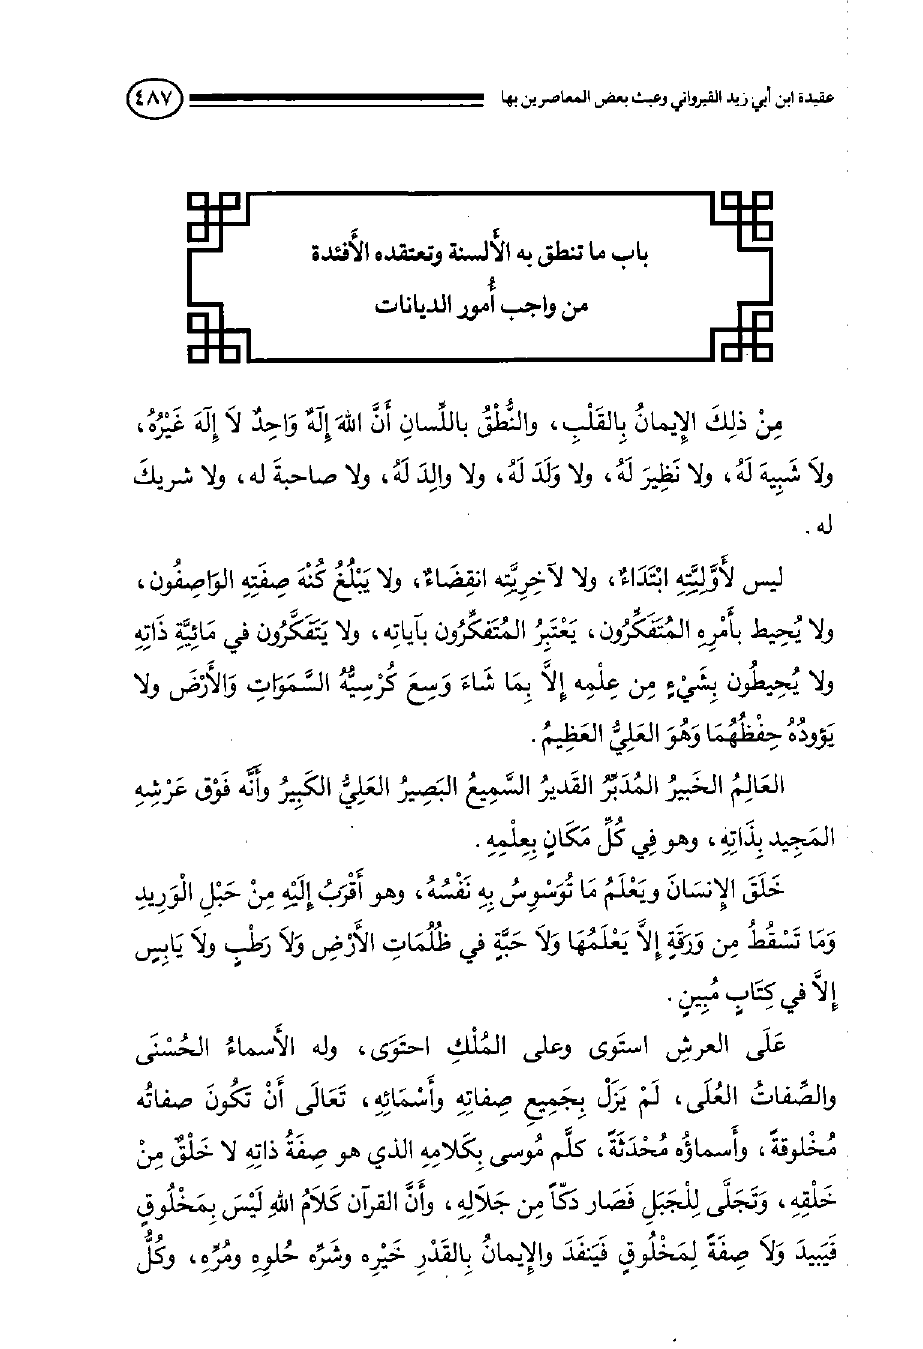 عقيدة ابن أبي زيد القيرواني وعبث بعض المعاصرين بها ٤٨٧
باب ما تنطق به الألسنة وتعتقده الأفئدة
من واجب أُمور الديانات
مِنْ ذلِكَ الإيمانُ بِالقَلْبِ، والنُّطْقُ باللِّسانِ أَنَّ اللهَ إِلَهٌ وَاحِدٌ لاَ إِلَهَ غَيْرُهُ،
ولاَ شَبِيهَ لَهُ، ولا نَظِيرَ لَهُ، ولا وَلَدَ لَهُ، ولا والِدَ لَهُ، ولا صاحبةَ له، ولا شريكَ
له.
ليس لأَوَّلِيَّتِهِ ابْتَدَاءٌ، ولا لآخِرِيَّتِه انقِضَاءٌ، ولا يَبْلُغُ كُنْهَ صِفَتِهِ الوَاصِفُون،
ولا يُحِيط بأَمْرِهِ المُتَفَكِّرُون، يَعْتَبِرُ المُتَفكِّرُون بآياتِه، ولا يَتَفَكَّرُون في مَائِيَّةِ ذَاتِهِ
ولا يُحِيطُون بِشَيْءٍ مِن عِلْمِه إِلاَّ بِمَا شَاءَ وَسِعَ كُرْسِيُّهُ السَّمَوَاتِ وَالأَرْضَ ولا
يَؤودُهُ حِفْظُهُمَا وَهُوَ العَلِيُّ العَظِيمُ.
العَالِمُ الخَبِيرُ المُدَبِّرُ القَدِيرُ السَّمِيعُ البَصِيرُ العَلِيُّ الكَبِيرُ وأَنَّه فَوْق عَرْشِهِ
المَجِيد بِذَاتِهِ، وهو فِي كُلِّ مَكَان بِعِلْمِهِ.
خَلَقَ الإنسَانَ ويَعْلَمُ مَا تُوَسْوِسُ بِهِ نَفْسُهُ، وهو أَقْرَبُ إِلَيْهِ مِنْ حَبْلِ الْوَرِيدِ
وَمَا تَسْقُطُ مِن وَرَقَةٍ إِلاَّ يَعْلَمُهَا وَلاَ حَبَّةٍ في ظُلُمَاتِ الأَرْضِ وَلاَ رَطْبٍ ولاَ يَابِسٍ
إِلاَّ في كِتَابٍ مُبِينٍ.
عَلَى العرشِ استَوى وعلى المُلْكِ احتَوَى، وله الأَسماءُ الحُسْنَى
والصِّفاتُ العُلَى، لَمْ يَزَلْ بِجَمِيعِ صِفاتِهِ وأَسْمَائِه، تَعَالَى أَنْ تَكُونَ صفاتُه
مُخْلوقةً، وأَسماؤُه مُحْدَثَةً، كلَّم مُوسى بِكَلامِهِ الذي هو صِفَةُ ذاتِهِ لا خَلْقٌ مِنْ
خَلْقِهِ، وَتَجَلَّى لِلْجَبَلِ فَصَار دَكّاً مِن جَلاَلِهِ، وأَنَّ القرآن كَلاَمُ اللهِ لَيْسَ بِمَخْلُوقٍ
فَيَبِيدَ وَلاَ صِفَةً لِمَخْلُوقٍ فَيَنفَدَ والإِيمانُ بِالقَدْرِ خَيْرِه وشرِّه حُلوِهِ ومُرِّه، وكُلُّ